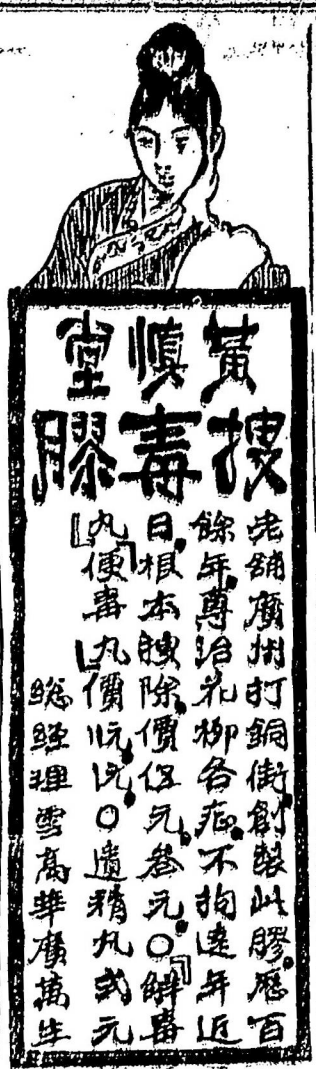 黃慎堂
搜毒膠
老舖廣州打銅街創製此膠歷百
餘年專治花柳各症不拘遠年近
日根本搜除價伍元叁元○「解毒
丸」便毒丸」價 元○遺精丸弍元
總經理雪高華廣萬生